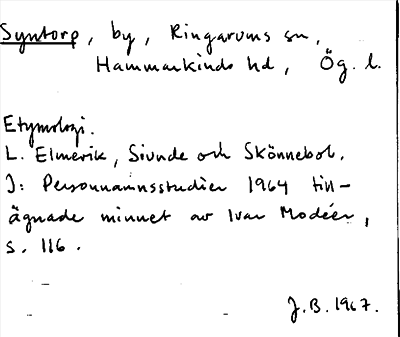 Syntorp, by, Ringarums sn,
Hammarkinds hd, Ög. l.
Etymologi.
L. Elmevik, Siunde och Skönnebol.
I: Personnamnsstudier 1964 till-
ägnade minnet av Ivar Modéer,
s. 116.
J.B. 1967.